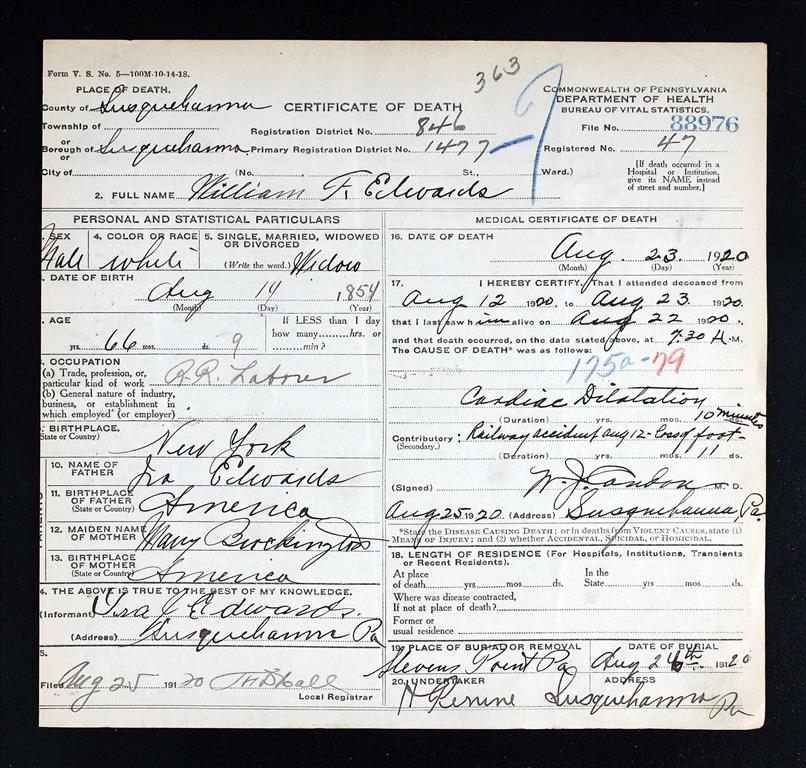 Form V. S. No. 5—100M-10-14-18.
363
PLACE OF DEATH.
County of Susquehanna
CERTIFICATE OF DEATH
COMMONWEALTH OF PENNSYLVANIA
DEPARTMENT OF HEALTH
BUREAU OF VITAL STATISTICS.
Township of
or
Registration District No. 846
File No. 88976
Borough of Susquehanna
Primary Registration District No. 1477
Registered No. 47
or
City of (No. St., Ward.)
[If death occurred in a Hospital or Institution, give its NAME instead of street and number.]
2. FULL NAME William F. Edwards
PERSONAL AND STATISTICAL PARTICULARS
SEX Male
4. COLOR OR RACE white
5. SINGLE, MARRIED, WIDOWED OR DIVORCED
(Write the word.) Widow
DATE OF BIRTH
Aug 14 1854
(Month) (Day) (Year)
AGE
66 yrs. mos. 9 ds.
If LESS than 1 day how many hrs. or min.?
OCCUPATION
(a) Trade, profession, or particular kind of work R.R. Laborer
(b) General nature of industry, business, or establishment in which employed (or employer)
BIRTHPLACE.
(State or Country) New York
10. NAME OF FATHER Ira Edwards
11. BIRTHPLACE OF FATHER
(State or Country) America
12. MAIDEN NAME OF MOTHER Mary
13. BIRTHPLACE OF MOTHER
(State or Country) America
4. THE ABOVE IS TRUE TO THE BEST OF MY KNOWLEDGE.
(Informant) Ira J Edwards
(Address) Susquehanna Pa
5.
Filed Aug 25 1920
Local Registrar
MEDICAL CERTIFICATE OF DEATH
16. DATE OF DEATH
Aug. 23 1920
(Month) (Day) (Year)
17. I HEREBY CERTIFY, That I attended deceased from
Aug 12 1920, to Aug 23 1920.
that I last saw him alive on Aug 22 1920,
and that death occurred, on the date stated above, at 7.30 A.M.
The CAUSE OF DEATH* was as follows:
175a-79
Cardiac Dilatation
(Duration) yrs. mos. 10 minutes
Contributory: Railway accident Aug 12 - Loss of foot-
(Secondary.)
(Duration) yrs. mos. 11 ds.
(Signed) W. J. M. D.
Aug 25 1920 (Address) Susquehanna, Pa.
*State the DISEASE CAUSING DEATH; or in deaths from VIOLENT CAUSES, state (1) MEANS OF INJURY; and (2) whether ACCIDENTAL, SUICIDAL, or HOMICIDAL.
18. LENGTH OF RESIDENCE (For Hospitals, Institutions, Transients or Recent Residents).
At place of death yrs. mos. ds.
In the State yrs mos. ds.
Where was disease contracted, If not at place of death?
Former or usual residence
19. PLACE OF BURIAL OR REMOVAL
Stevens Point Pa
DATE OF BURIAL
Aug 26th 1920
20. UNDERTAKER
ADDRESS
Susquehanna Pa